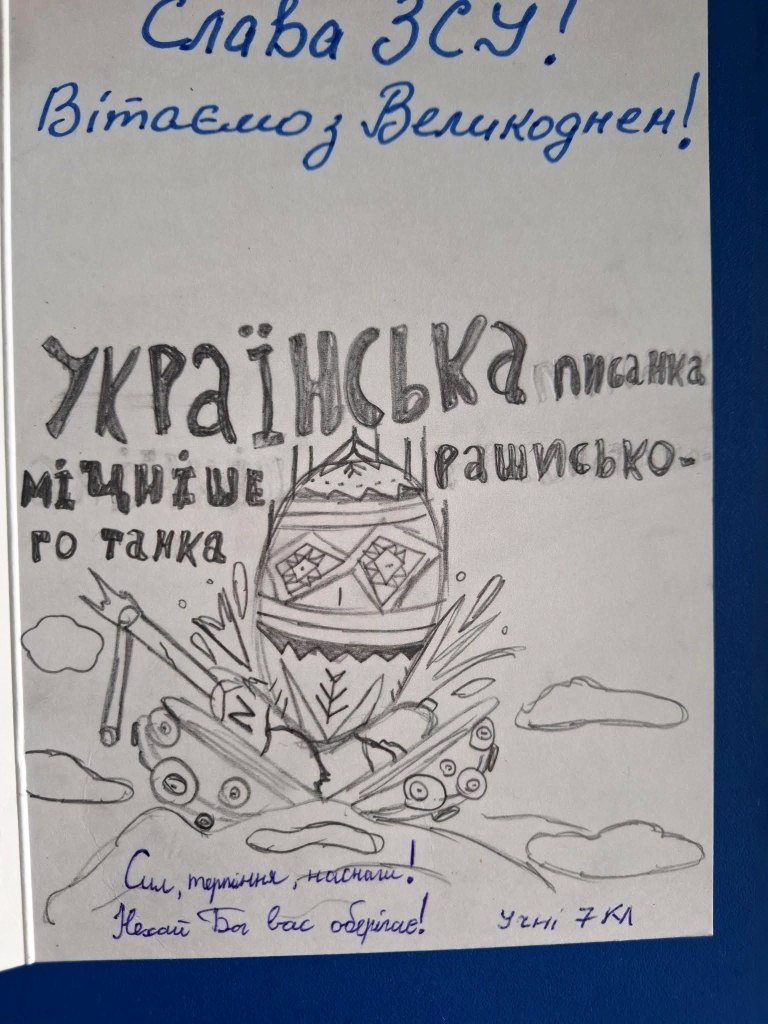 Слава ЗСУ!
Вітаємо з Великоднен!
УКРАЇНСЬКА писанка
міцніше рашисько-
го танка
Z
Сил, терпіння, наснаги!
Нехай Бог вас оберігає!
Учні 7 КЛ